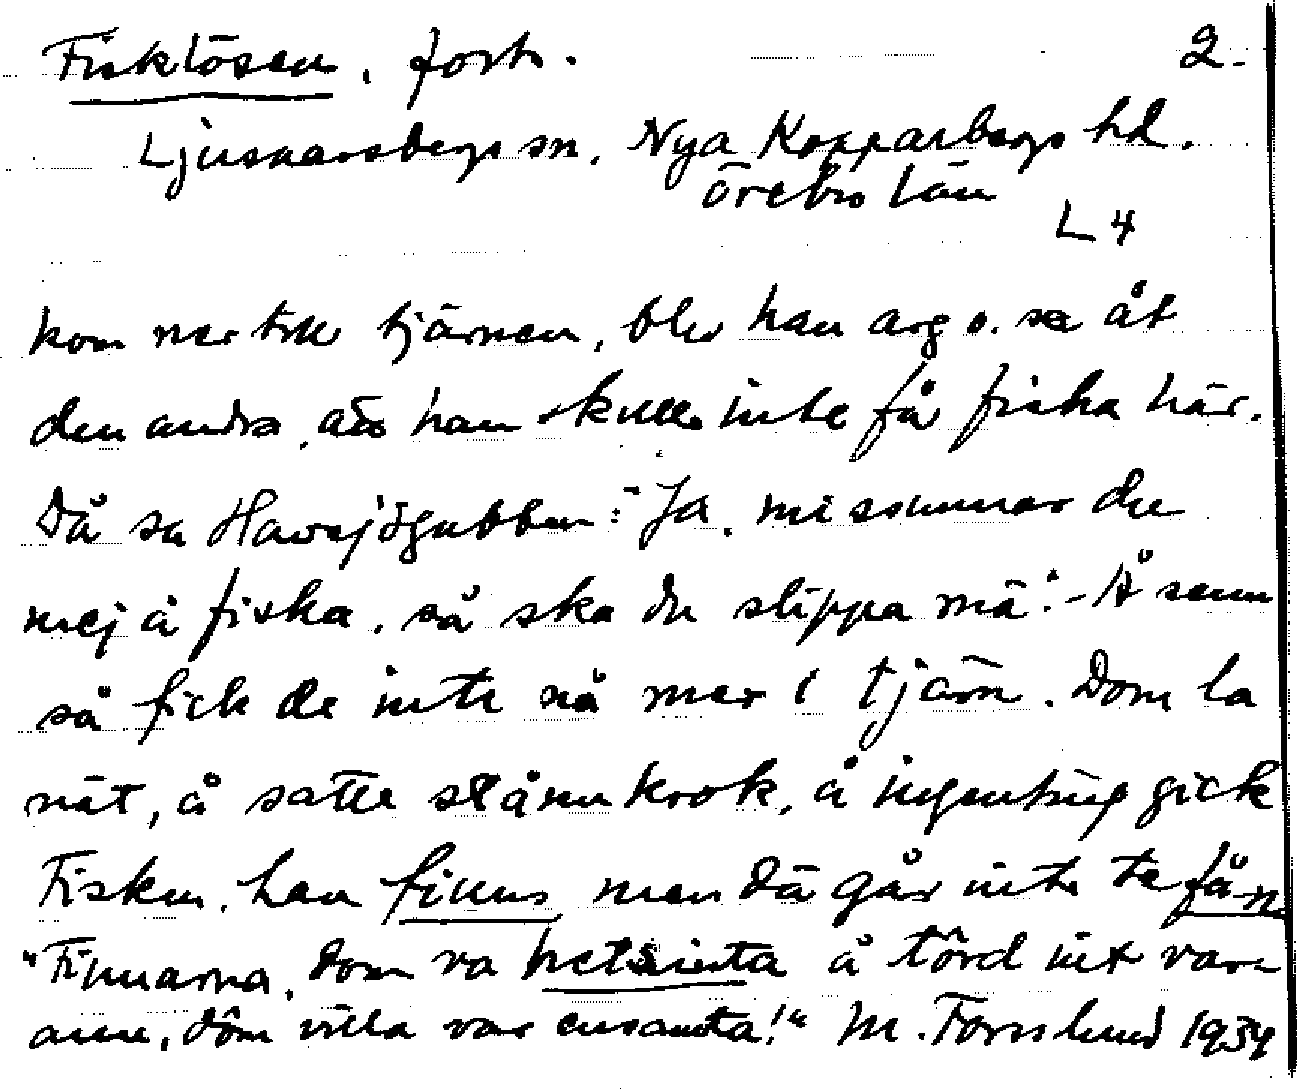 Fisklösen, forts. 2.
Ljusnarsbergs sn. Nya Kopparbergs hd.
Örebro län
L 4
kom ner till tjärnen, blev han arg o. sa åt
den andra, att han skulle inte få fiska här.
Då sa Havsjögubben: "Ja, missunnar du
mej å fiska, så ska du slippa mä". - Å senn
så fick de inte nå mer i tjärn. Dom la
nät, å satte stånnkrok, å ingenting gick
Fisken, han finns men dä går inte te få'n
"Finnarna, dom va hetsinta å törd int var-
ann, dôm villa var ensamta!" M. Forsslund 1934